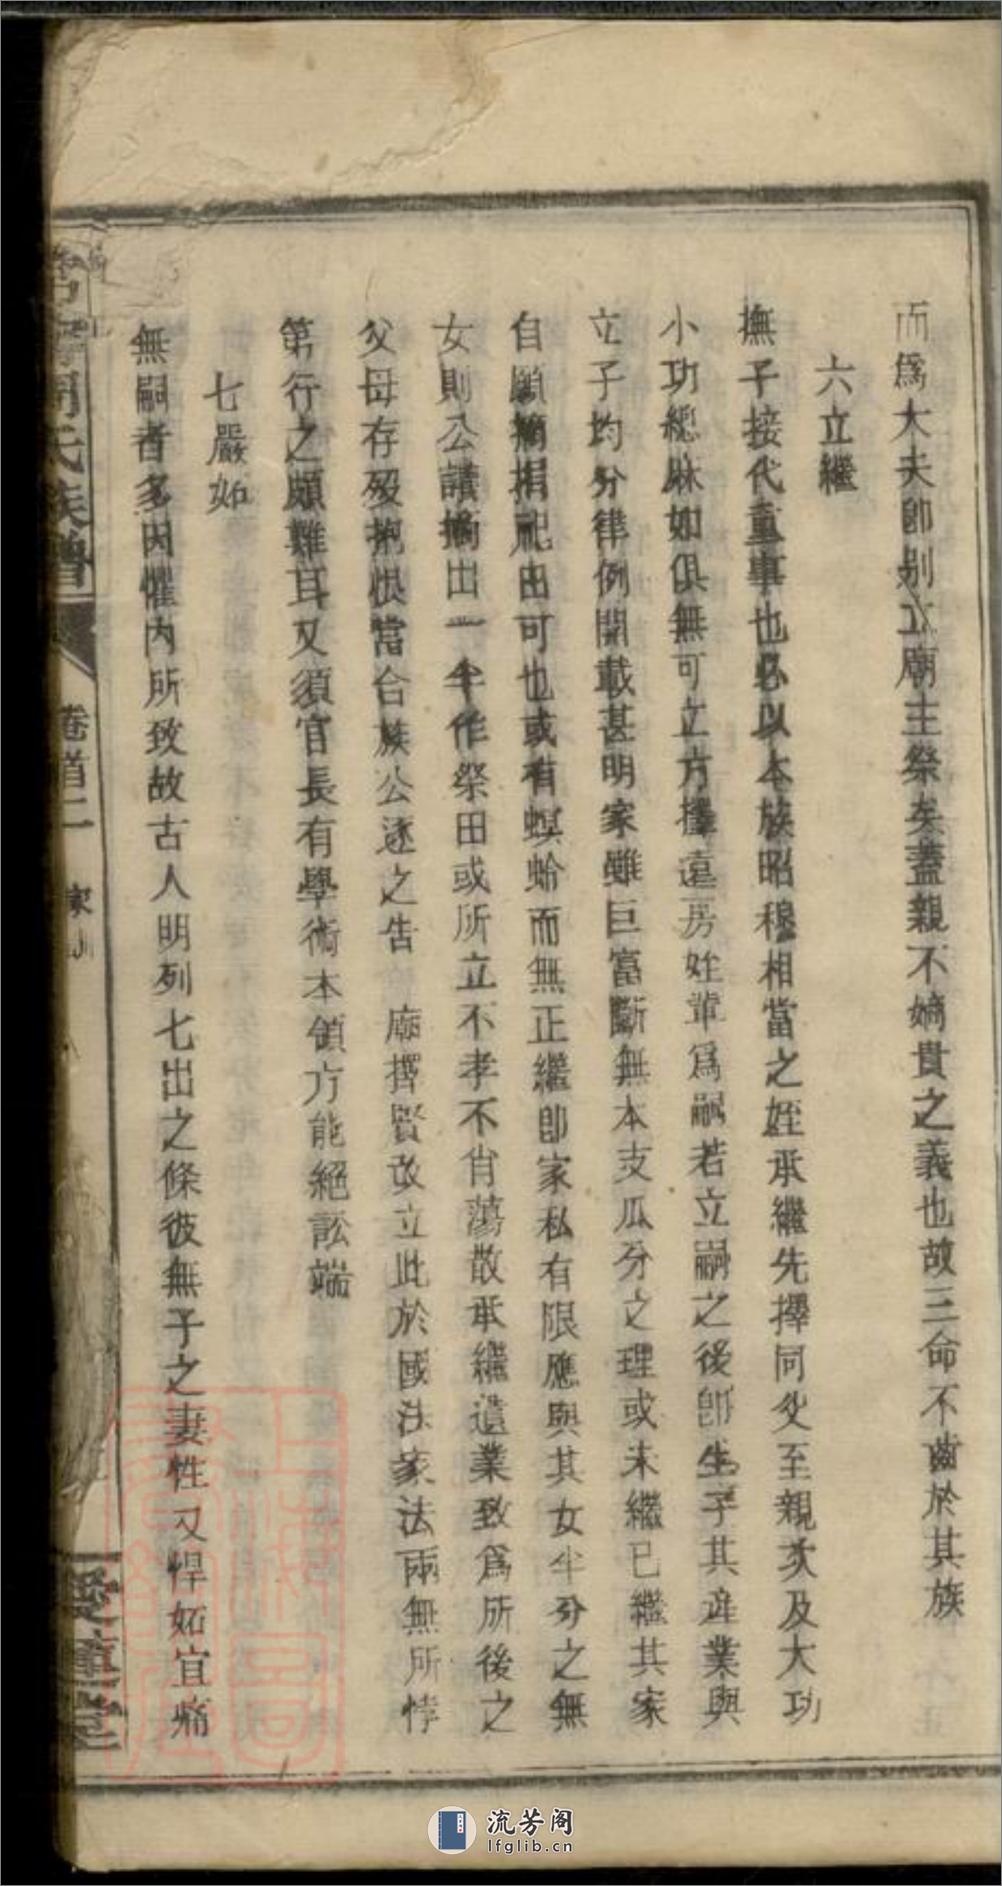 而爲大夫卽别立廟主祭矣蓋親不嫡貴之義也故三命不齒於其族
六立繼
撫子接代重事也必以本族昭穆相當之姪承繼先擇同父至親次及大功
小功緦麻如俱無可立方擇遠房姪輩爲嗣若立嗣之後卽生子其產業與
立子均分律例開載甚明家雖巨富斷無本支瓜分之理或未繼已繼其家
自願摘捐祀田可也或有螟蛉而無正繼卽家私有限應與其女半分之無
女則公議摘出一半作祭田或所立不孝不肖蕩散承繼遺業致爲所後之
父母存殁抱恨當合族公逐之告 廟擇賢改立此於國法家法兩無所悖
第行之頗難耳又須官長有學術本領方能絕訟端
七嚴妬
無嗣者多因懼內所致故古人明列七出之條彼無子之妻性又悍妬宜痛
周氏族譜
卷首二
家訓
愛蓮堂
上海圖書館藏
流芳阁
lfglib.cn